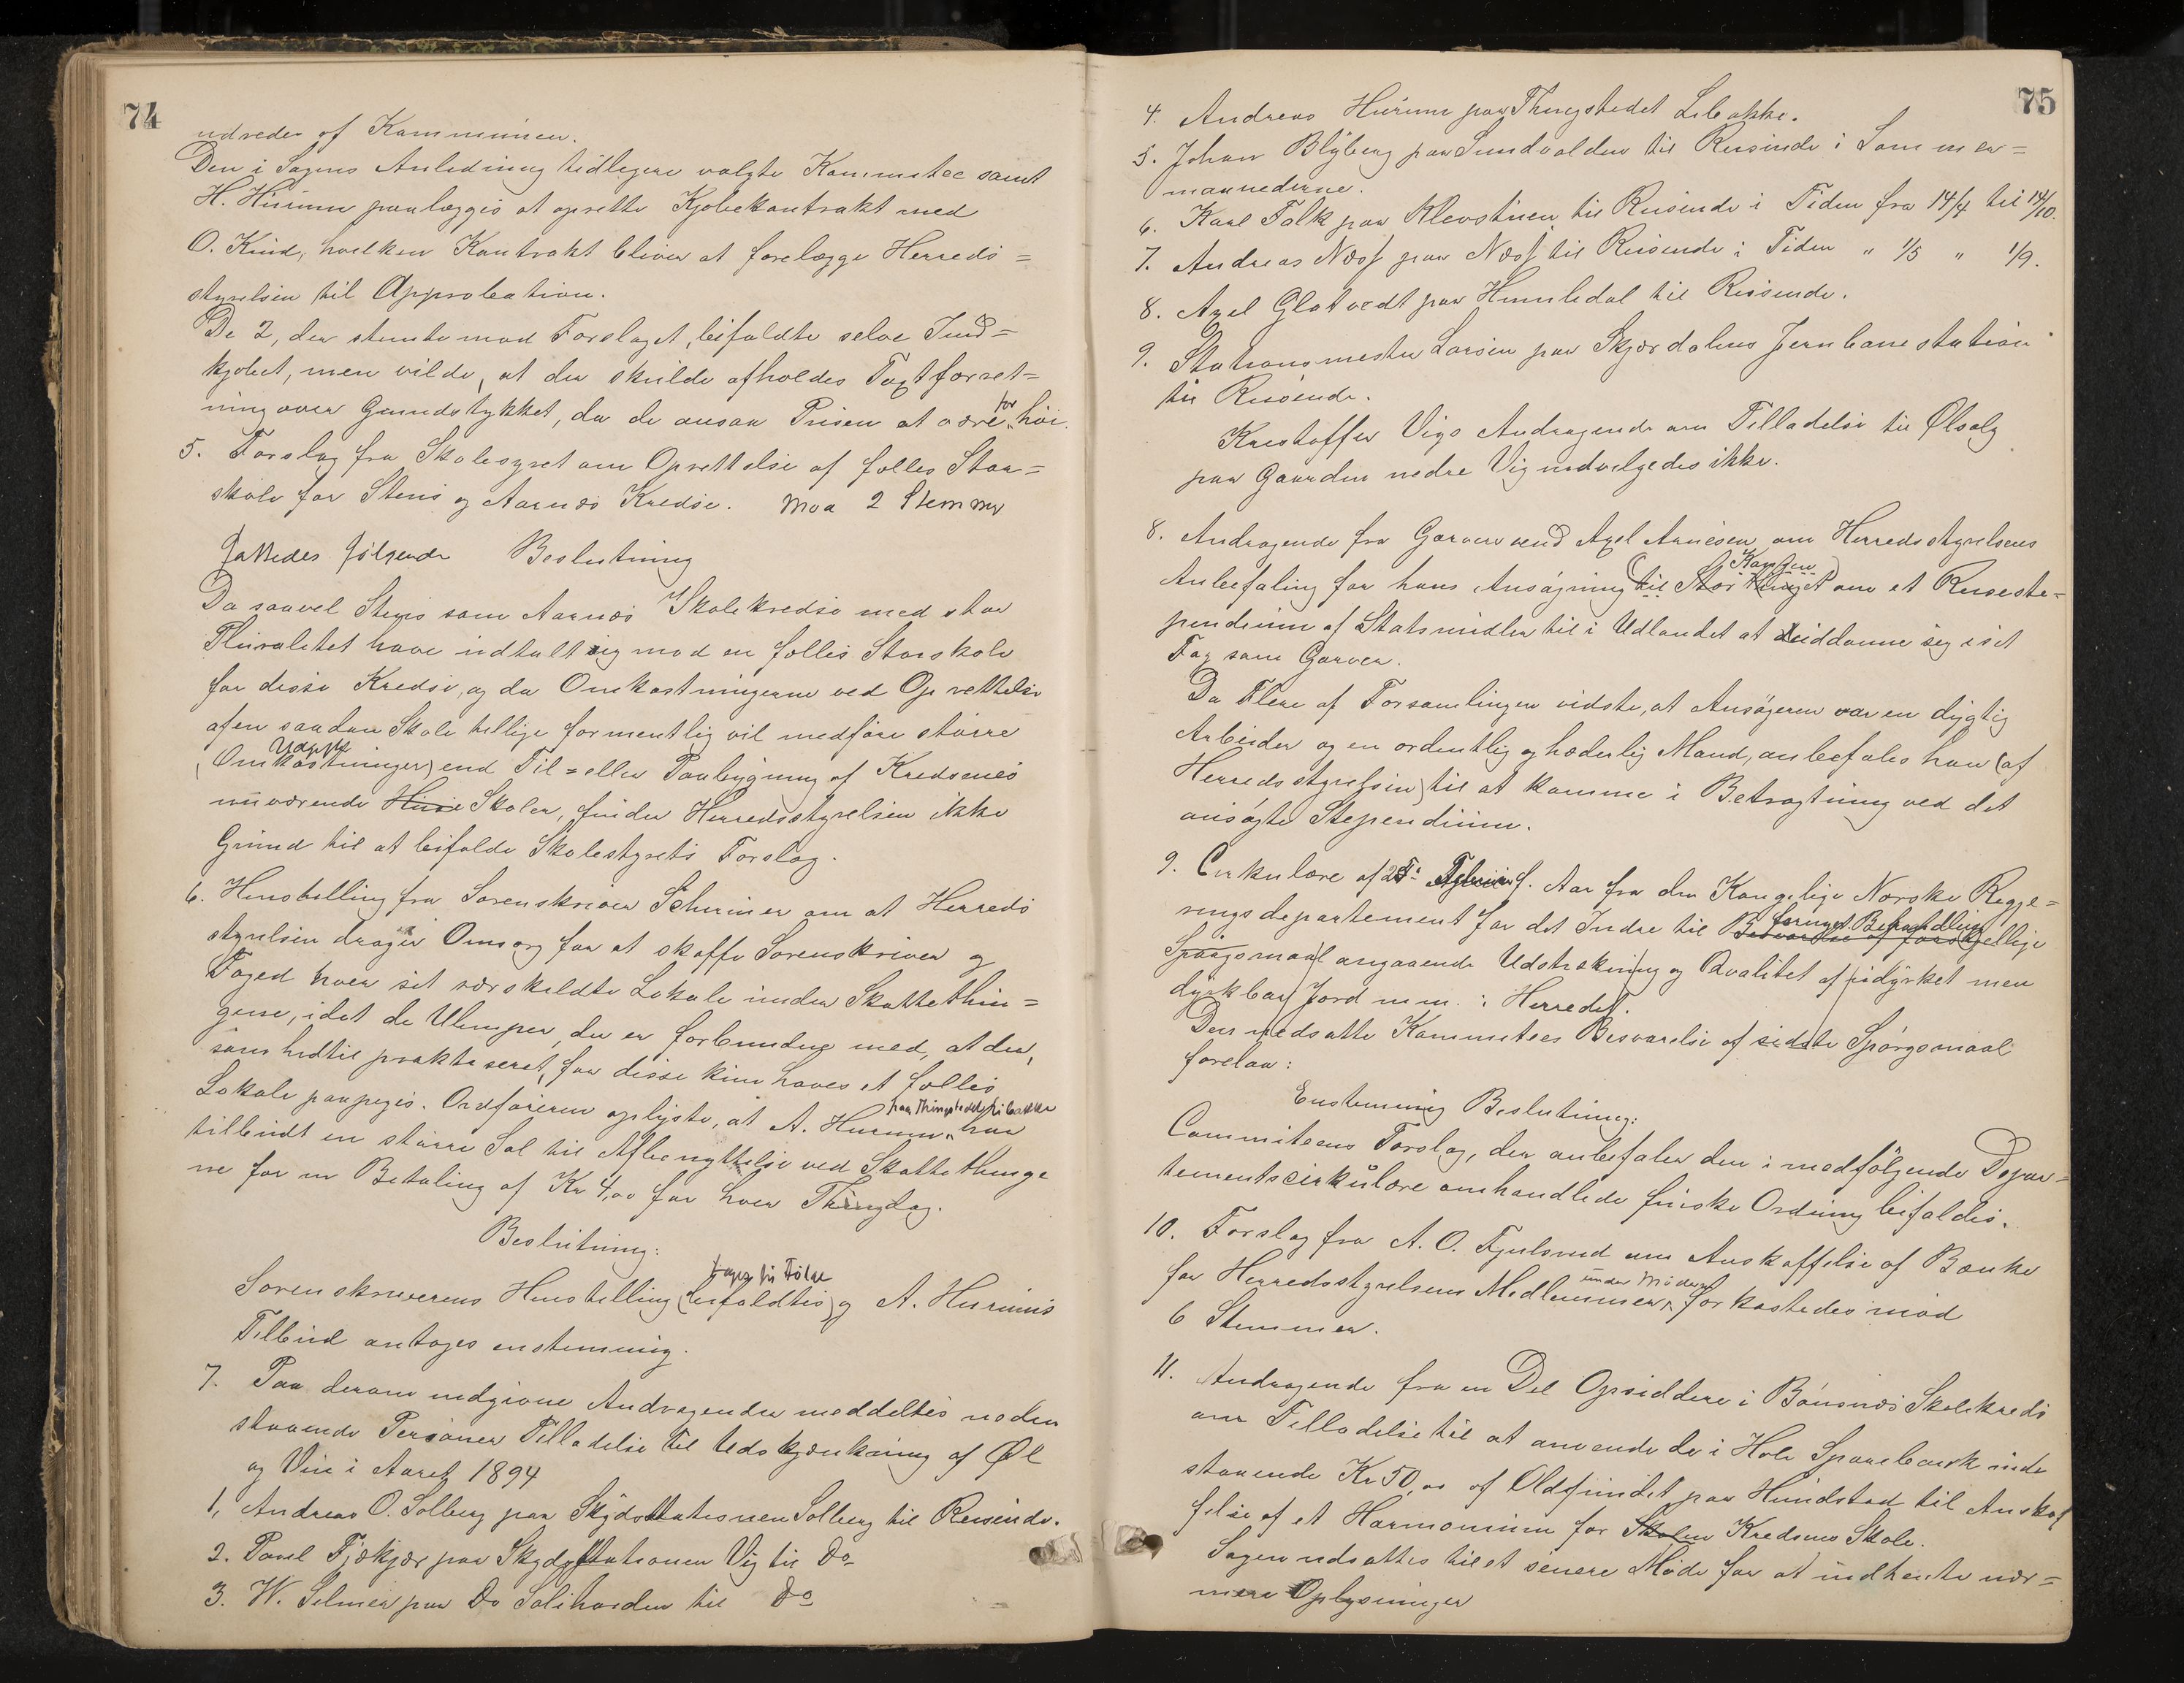 74
udredes af Kommunen.
Den i Sagens Anledning tidligere valgte Kommitee samt
H. Hurum paalægges at oprette Kjøbekontrakt med
O. Kind, hvilken Kontrakt bliver at forelægge Herreds=
styrelsen til Approbation.
De 2, der stemte mod Forslaget, bifaldte selve Ind=
kjøbet, men vilde, at der skulde afholdes Taxtforret=
ning over Grundstykket, da de ansaa Prisen at være for høi.
5. Forslag fra Skolestyret om Oprettelse af fælles Stor=
skole for Stens og Aarnæs Kredse. Mod 2 Stemmer
fattedes følgende Beslutning
Da saavel Stens som Aarnæs Skolekredse med stor
Pluralitet have udtalt sig mod en fælles Storskole
for disse Kredse, og da Omkostningerne ved Oprettelse
af en saadan Skole tillige formentlig vil medføre større
Udgifter
(Omkostninger) end Til= eller Paabygning af Kredsenes
nuværende Huse Skoler, finder Herredsstyrelsen ikke
Grund til at bifalde Skolestyrets Forslag.
6. Henstilling fra Sorenskriver Scheiner om at Herreds
styrelsen drager Omsorg for at skaffe Sorenskriver og
Foged hver sit særskildte Lokale under Skattethin=
gene, idet de Ulemper, der er forbundne med, at der,
som hidtil praktiseret, for disse kun haves et fælles
Lokale paapeges. Ordføreren oplyste, at A. Hurum paa Thingstedet Libakke har
tilbudt en større Sal til Afbenyttelse ved Skattethinge
ne for en Betaling af Kr 4,00 for hver Thingdag.
Beslutning:
tages til Følge
Sorenskriverens Henstilling (bifaldtes) og A. Hurums
Tilbud antoges enstemmig.
7. Paa derom indgivne Andragender meddeltes neden
staaende Personer Tilladelse til Udskjænkning af Øl
og Vin i Aaret 1894
1, Andreas O. Solberg paa Skydsstationen Solberg til Reisende.
2. Povel Fjækjær paa Skydsstationen Vig til Do
3. W. Selmer paa Do Solihøiden til Do
75
4. Andreas Hurum paa Thingstedet Libakke.
5. Johan Blyberg paa Sundvolden til Reisende i Sommer=
maanederne.
6. Karl Falk paa Klevstuen til Reisende i Tiden fra 14/4 til 14/10.
7. Andreas Næss paa Næss til Reisende i Tiden " 1/5 " 1/9.
8. Axel Glatvedt paa Humledal til Reisende.
9. Stationsmester Larsen paa Skjærdalens Jernbanestation
til Reisende.
Kristoffer Vigs Andragende om Tilladelse til Ølsalg
paa Gaarden nedre Vig indvilgedes ikke.
8. Andragende fra Garversvend Axel Arnesen om Herredsstyrelsens
Kongen
Anbefaling for hans Ansøgning (til Storthinget) om et Reisesti=
pendium af Statsmidler til i Udlandet at uddanne sig i sit
Fag som Garver.
Da Flere af Forsamlingen vidste, at Ansøgeren var en dygtig
Arbeider og en ordentlig og hæderlig Mand, anbefales han (af
Herredsstyrelsen) til at komme i Betragtning ved det
ansøgte Stependium.
9. Cirkulære af f. Aar fra den Kongelige Norske Regje=
ringsdepartement for det Indre til fornyet Behandling Besvarelse af forskjellige
Spørgsmaal angaaende Udstrækning og Qvalitet af udyrket men
dyrkbar Jord m.m. i Herredet.
Den nedsatte Kommitees Besvarelse af sidste Spørgsmaal
forelaa:
Enstemmig Beslutning:
Commiteens Forslag, der anbefaler den i medfølgende Depar=
tementscirkulære omhandlede finske Ordning bifaldes.
10. Forslag fra A. O. Fjulsrud om Anskaffelse af Bænke
for Herredsstyrelsens Medlemmer under Møderne forkastedes mod
6 Stemmer.
11. Andragende fra en Del Opsiddere i Bønsnæs Skolekreds
om Tilladelse til at anvende de i Hole Sparebank inde
staaende Kr 50,00 af Oldfundet paa Hundstad til Anskaf
felse af et Harmonium for Skolen Kredsens Skole.
Sagen udsattes til et senere Møde for at indhente nær=
mere Oplysninger